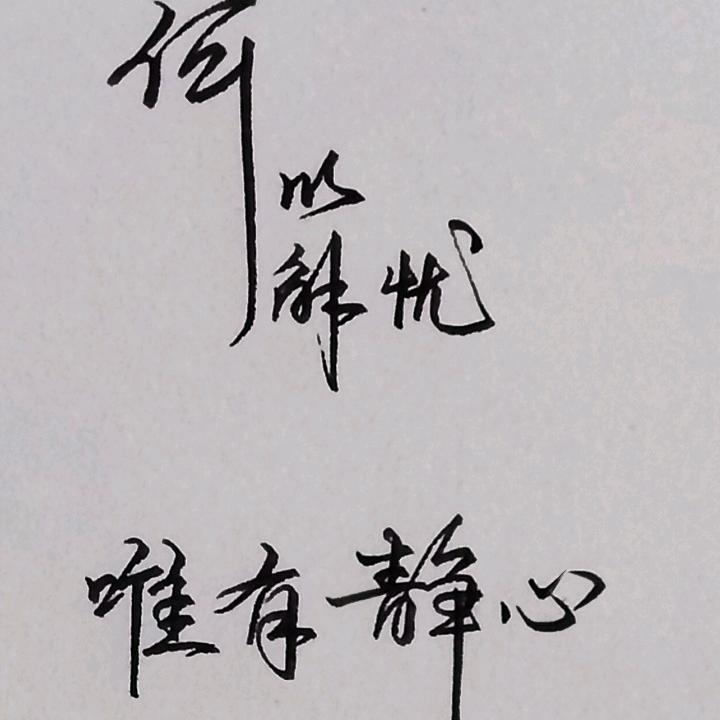 何以解忧
唯有静心